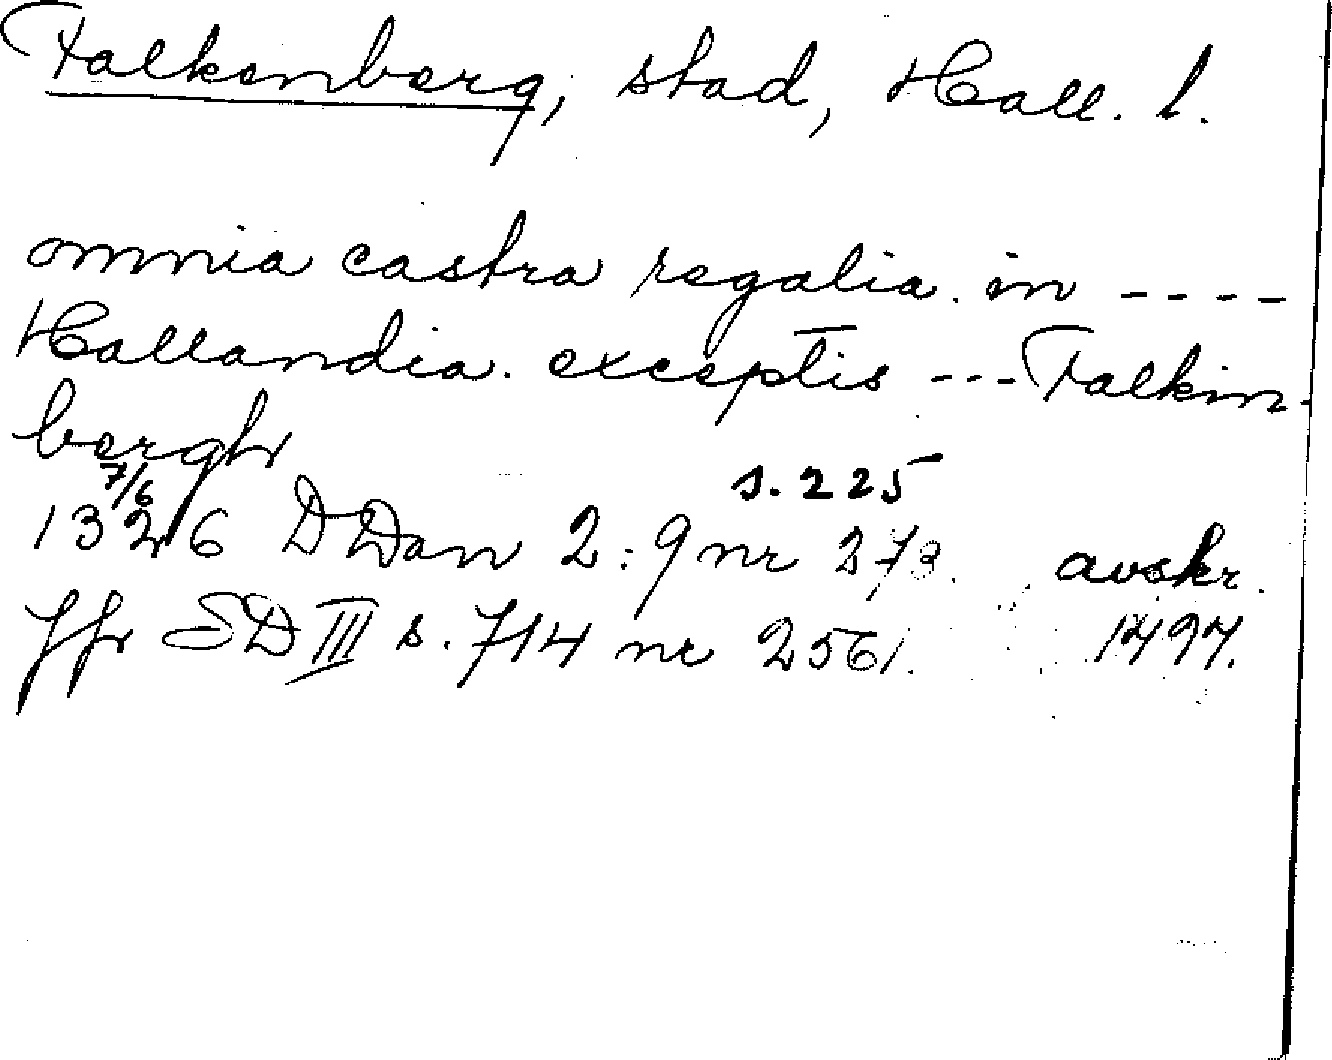 Falkenberg, stad, Hall. l.
omnia castra regalia. in ----
Hallandia. exceptis --- Falkin-
bergh
7/6 s. 225
1326 DDan 2:9 nr 273. avskr.
Jfr SD III s. 714 nr 2561. 1494.